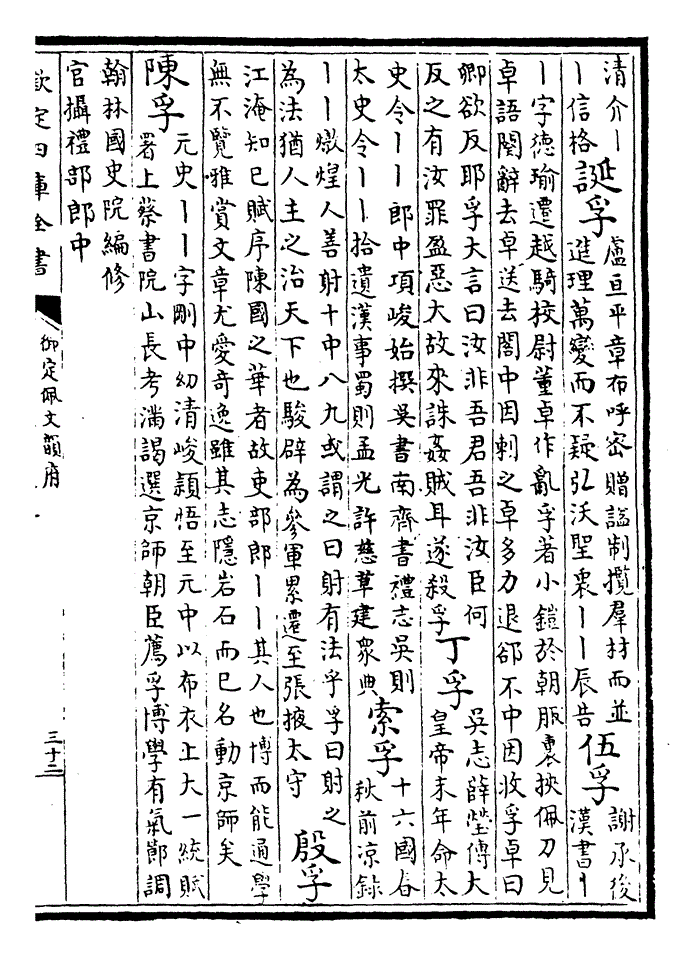 清介丨
丨信格
誕孚
盧亘平章布呼密贈謚制攬羣材而並
進理萬變而不疑弘沃聖衷丨丨辰告
伍孚
謝承後
漢書丨
丨字德瑜遷越騎校尉董卓作亂孚著小鎧於朝服裏挾佩刀見
卓語闋辭去卓送去閤中因刺之卓多力退郤不中因收孚卓曰
卿欲反耶孚大言曰汝非吾君吾非汝臣何
反之有汝罪盈惡大故來誅姦賊耳遂殺孚
丁孚
吳志薛瑩傳大
皇帝末年命太
史令丨丨郎中項峻始撰吳書南齊書禮志吳則
太史令丨丨拾遺漢事蜀則孟光許慈草建衆典
索孚
十六國春
秋前凉録
丨丨燉煌人善射十中八九或謂之曰射有法乎孚曰射之
為法猶人主之治天下也駿辟為參軍累遷至張掖太守
殷孚
江淹知已賦序陳國之華者故吏部郎丨丨其人也博而能通學
無不覽雅賞文章尤愛奇逸雖其志隱岩石而已名動京師矣
陳孚
元史丨丨字剛中幼清峻頴悟至元中以布衣上大一統賦
署上蔡書院山長考滿謁選京師朝臣薦孚博學有氣節調
翰林國史院編修
官攝禮部郎中
欽定四庫全書
御定佩文韻府
三十二